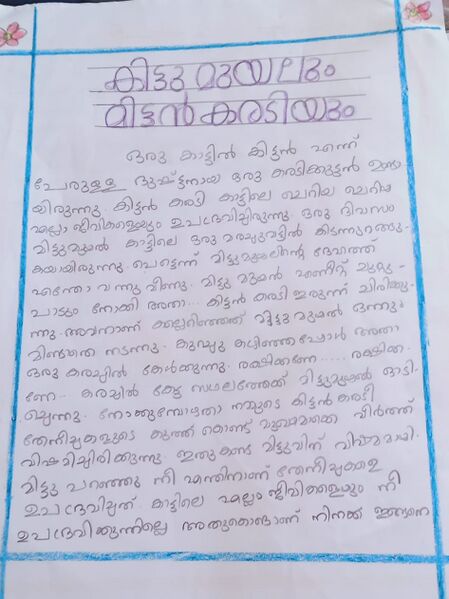 കിട്ടു മുയലും
മിട്ടൻ കരടിയും
ഒരു കാട്ടിൽ കിട്ടൻ എന്ന്
പേരുള്ള ദുഷ്ട്ടനായ ഒരു കരടിക്കുട്ടൻ ഉണ്ടാ
യിരുന്നു. കിട്ടൻ കരടി കാട്ടിലെ ചെറിയ ചെറിയ
എല്ലാ ജീവികളെയും ഉപദ്രവിച്ചിരുന്നു. ഒരു ദിവസം
മിട്ടുമുയൽ കാട്ടിലെ ഒരു മരച്ചുവട്ടിൽ കിടന്നുറങ്ങു-
കയായിരുന്നു. പെട്ടെന്ന് മിട്ടുമുയലിന്റെ ദേഹത്ത്
എന്തോ വന്നു വീണു. മിട്ടു മുയൽ എണീറ്റ് ചുറ്റു-
പാടും നോക്കി അതാ... കിട്ടൻ കരടി ഇരുന്ന് ചിരിക്കു-
ന്നു. അവനാണ് കല്ലെറിഞ്ഞത് മിട്ടു മുയൽ ഒന്നും
മിണ്ടാതെ നടന്നു. കുറച്ചു കഴിഞ്ഞപ്പോൾ അതാ
ഒരു കരച്ചിൽ കേൾക്കുന്നു. രക്ഷിക്കണേ..... രക്ഷിക്ക
ണേ... കരച്ചിൽ കേട്ട സ്ഥലത്തേക്ക് മിട്ടുമുയൽ ഓടി-
ച്ചെന്നു. നോക്കുമ്പോഴതാ നമ്മുടെ കിട്ടൻ കരടി
തേനീച്ചകളുടെ കുത്ത് കൊണ്ട് മുഖമൊക്കെ വീർത്ത്
വിഷമിച്ചിരിക്കുന്നു. ഇതുകണ്ട മിട്ടുവിന് വിഷമമായി.
മിട്ടു പറഞ്ഞു നീ എന്തിനാണ് തേനീച്ചകളെ
ഉപദ്രവിച്ചത്. കാട്ടിലെ എല്ലാം ജീവികളെയും നീ
ഉപദ്രവിക്കുന്നില്ലെ അതുകൊണ്ടാണ് നിനക്ക് ഇങ്ങനെ